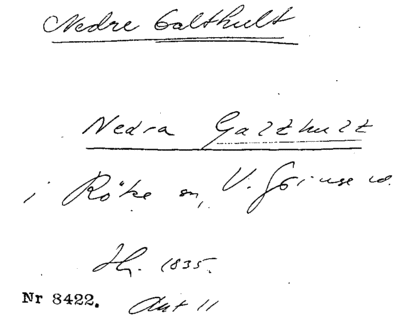 Nedre Galthult
Nedra Galthult
i Röke sn, V. Göinge hd.
Hf. 1835.
Nr 8422. Avt 11